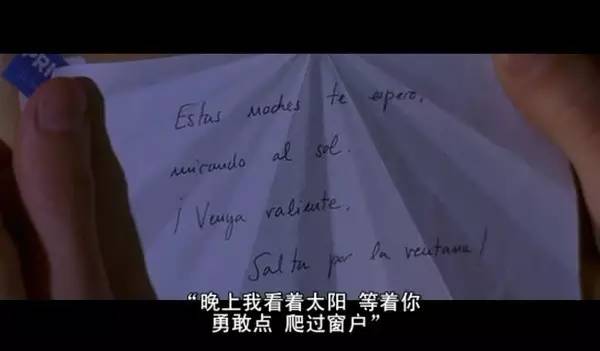 Estas noches te espero,
mirando al sol.
¡Venga valiente.
Salta por la ventana!
“晚上我看着太阳 等着你
勇敢点 爬过窗户”